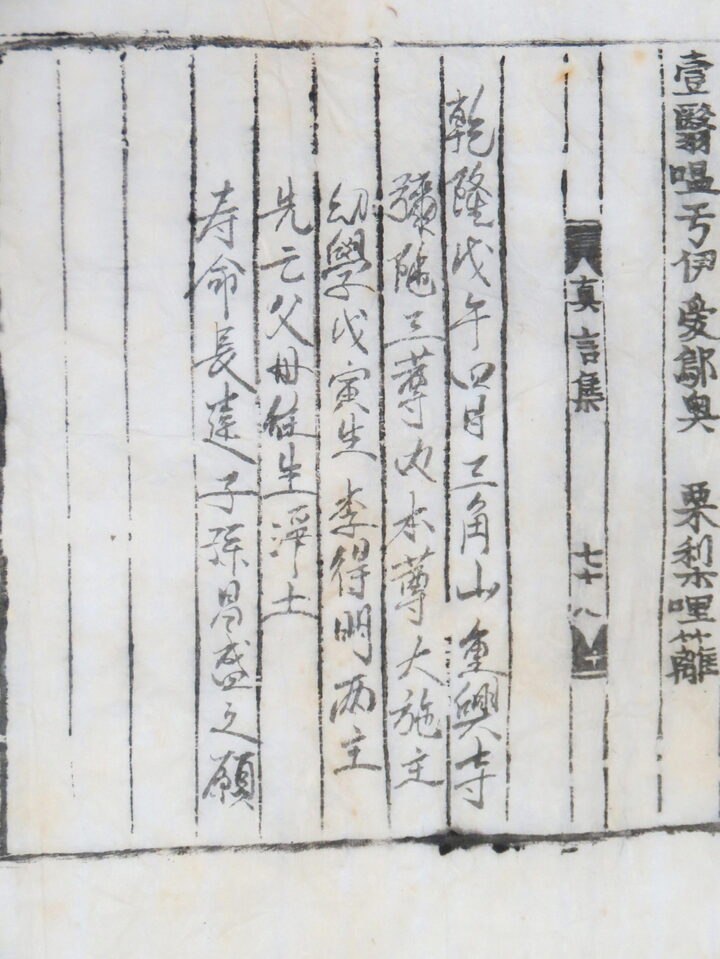 壹翳嗢亐伊愛鄔奥 栗梨哩蘺
真言集 七十八
乾隆戊午四月三角山重興寺
彌陁三尊內本尊大施主
幼學戊寅生李得明兩主
先亡父母徃生淨土
寿命長遠子孫昌盛之願